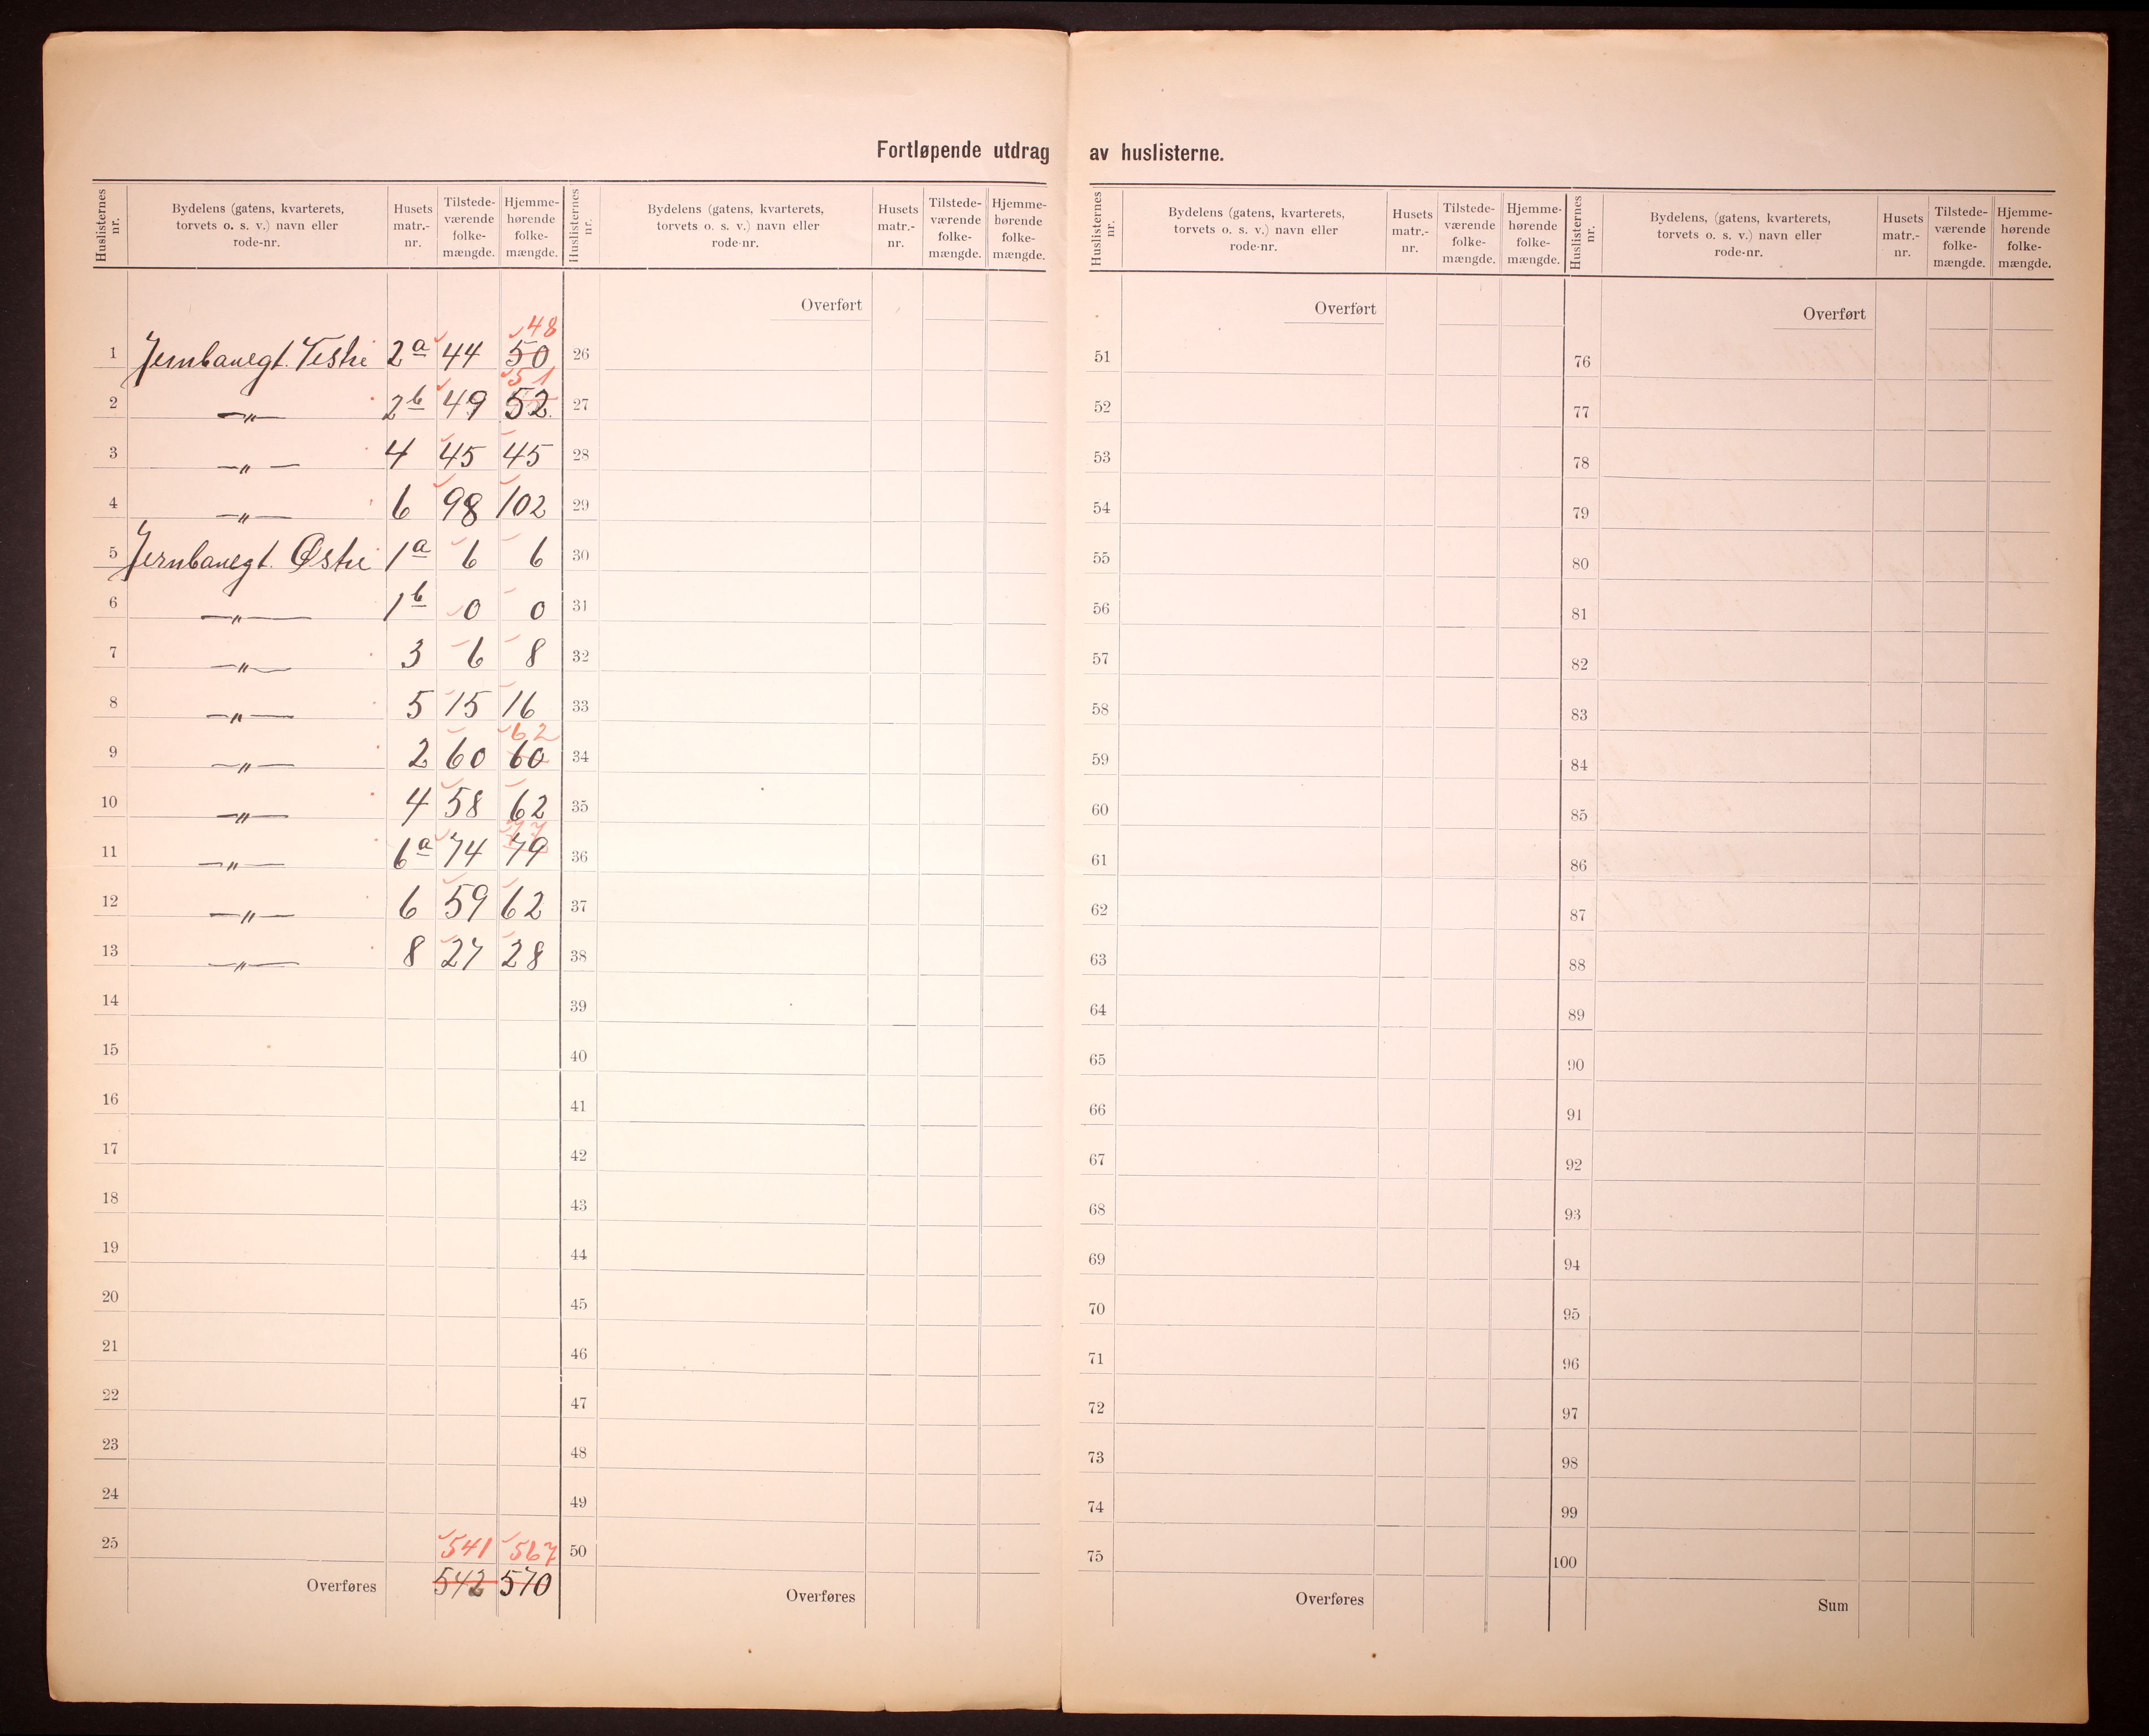 Fortløpende utdrag av huslisterne.
Huslisternes nr. | Bydelens (gatens, kvarterets, torvets o. s. v.) navn eller rode-nr. | Husets matr.-nr. | Tilstede-værende folke-mængde. | Hjemme-hørende folke-mængde.
48
1 Jernbanegt. Vestre 2a 44 50
51
2 —〃— 2b 49 52
3 —〃— 4 45 45
4 —〃— 6 98 102
5 Jernbanegt. Østre 1a 6 6
6 —〃— 1b 0 0
7 —〃— 3 6 8
8 —〃— 5 15 16
62
9 —〃— 2 60 60
10 —〃— 4 58 62
77
11 —〃— 6a 74 79
12 —〃— 6 59 62
13 —〃— 8 27 28
14
15
16
17
18
19
20
21
22
23
24
25 541 567
Overføres 542 570
Huslisternes nr. | Bydelens (gatens, kvarterets, torvets o. s. v.) navn eller rode-nr. | Husets matr.-nr. | Tilstede-værende folke-mængde. | Hjemme-hørende folke-mængde.
Overført
26
27
28
29
30
31
32
33
34
35
36
37
38
39
40
41
42
43
44
45
46
47
48
49
50
Overføres
Huslisternes nr. | Bydelens (gatens, kvarterets, torvets o. s. v.) navn eller rode-nr. | Husets matr.-nr. | Tilstede-værende folke-mængde. | Hjemme-hørende folke-mængde.
Overført
51
52
53
54
55
56
57
58
59
60
61
62
63
64
65
66
67
68
69
70
71
72
73
74
75
Overføres
Huslisternes nr. | Bydelens, (gatens, kvarterets, torvets o. s. v.) navn eller rode-nr. | Husets matr.-nr. | Tilstede-værende folke-mængde. | Hjemme-hørende folke-mængde.
Overført
76
77
78
79
80
81
82
83
84
85
86
87
88
89
90
91
92
93
94
95
96
97
98
99
100
Sum